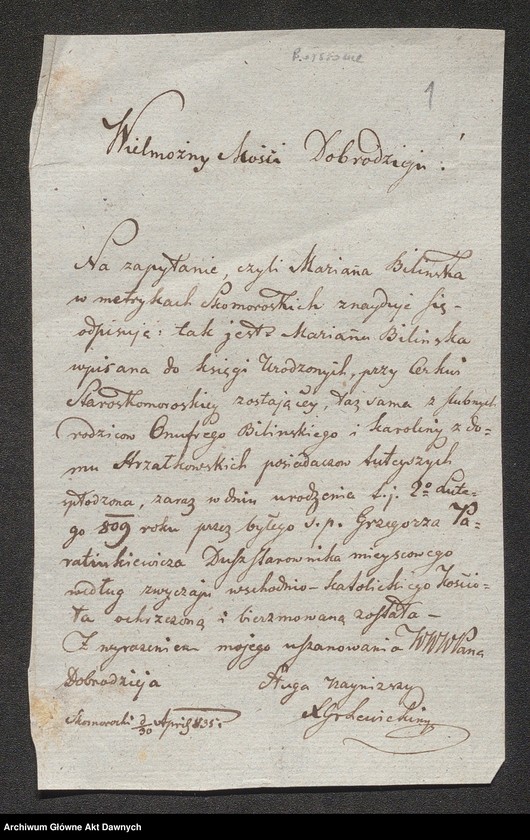 1
Wielmożny Mości Dobrodzieju!
Na zapytanie, czyli Marianna Bilińska
w metrykach Skomoroskich znayduje się -
odpisuję: tak jest - Marianna Bilińska
wpisana do księgi Urodzonych, przy Cerkwi
Staroskomoroskiey zostającey, taż sama z ślubnych
rodziców Onufrego Bilinskiego i Karoliny z do=
mu Strzałkowskich posiadaczow tuteyszych
spłodzona, zaraz w dniu urodzenia t.j. 2o Lute=
go 809 roku przez byłego ś.p. Grzegorza
Dusz starownika mieyscowego
według zwyczaju wschodnio-katolickiego Kościo=
ła ochrzczoną i bierzmowaną została -
Z wyrazeniem mojego uszanowania WWWPana
Dobrodzieja Sługa nayniższy
Skomorochi d 30 April 835.
Archiwum Główne Akt Dawnych